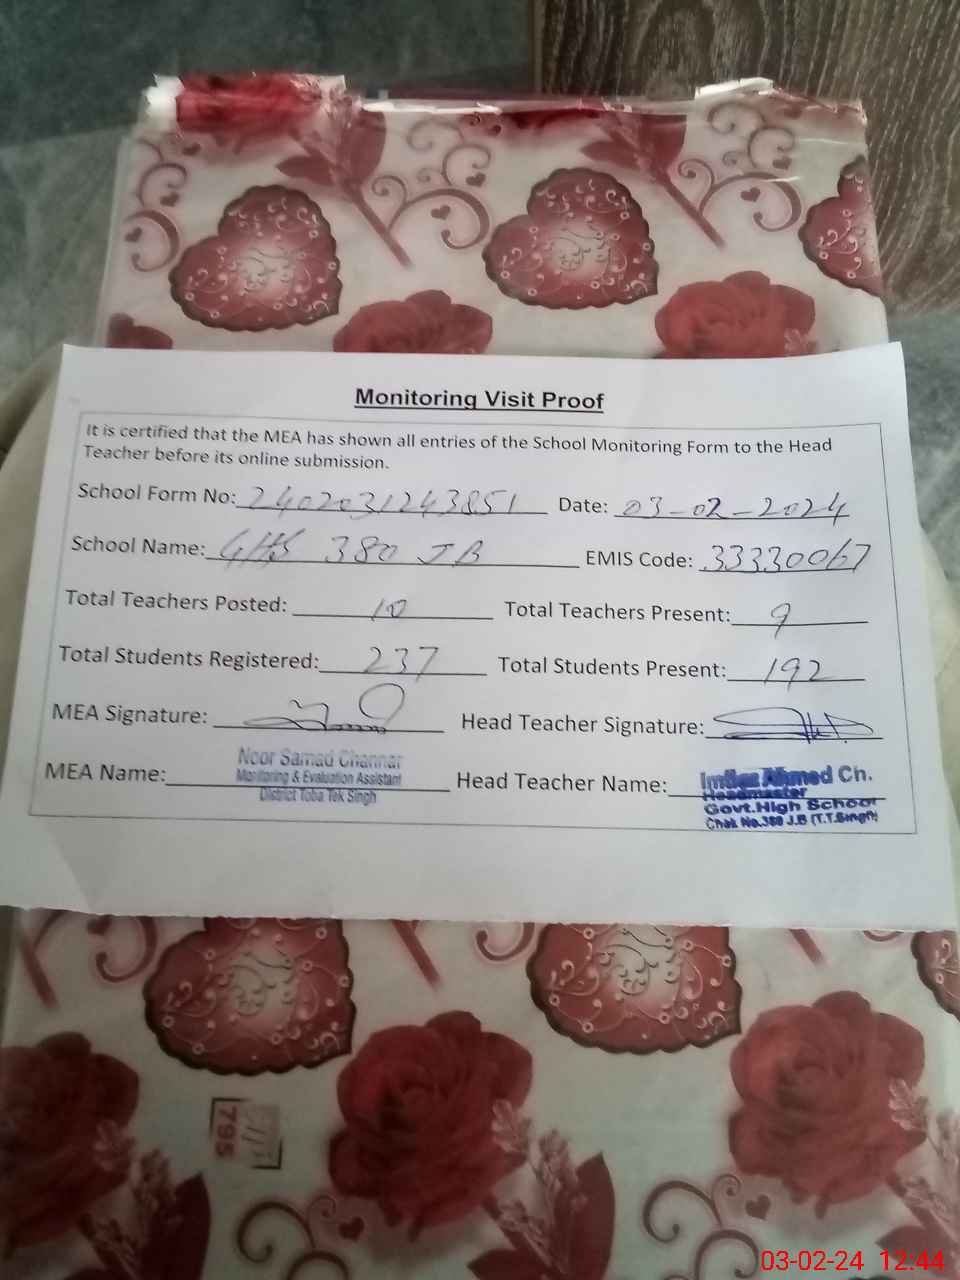 Monitoring Visit Proof
It is certified that the MEA has shown all entries of the School Monitoring Form to the Head
Teacher before its online submission.
School Form No: 2402031243851 Date: 03-02-2024
School Name: GHS 380 JB EMIS Code: 33330067
Total Teachers Posted: 10 Total Teachers Present: 9
Total Students Registered: 237 Total Students Present: 192
MEA Signature: Head Teacher Signature:
MEA Name: Noor Samad Channar
Monitoring & Evaluation Assistant
District Toba Tek Singh
Head Teacher Name: Imtiaz Ahmed Ch.
Headmaster
Govt.High School
Chak No.380 J.B (T.T.Singh)
795
03-02-24 12:44